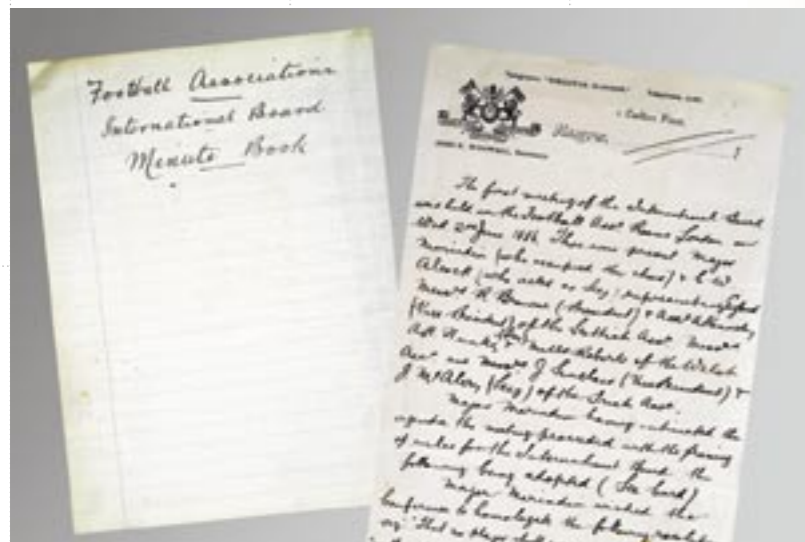 Football Associations
International Board
Minute Book
The first meeting of the International Board
was held in the Football Assn Rooms London on
Wed 2nd June 1886. There were present Major
Marindin (who occupied the chair) & C W
Alcock (who acted as Secy) representing
Messrs R Browne (President) & 
(Vice President) of the Scottish Assn. Messrs
 Hunter & Mills Roberts of the Welsh
Assn and Messrs J Sinclair (Vice President) &
J McAlery (Secy) of the Irish Assn.
Major Marindin having intimated the
agenda the meeting proceeded with the framing
of rules for the International Board the
following being adopted (See card)
Major Marindin asked the
Conference to homologate the following